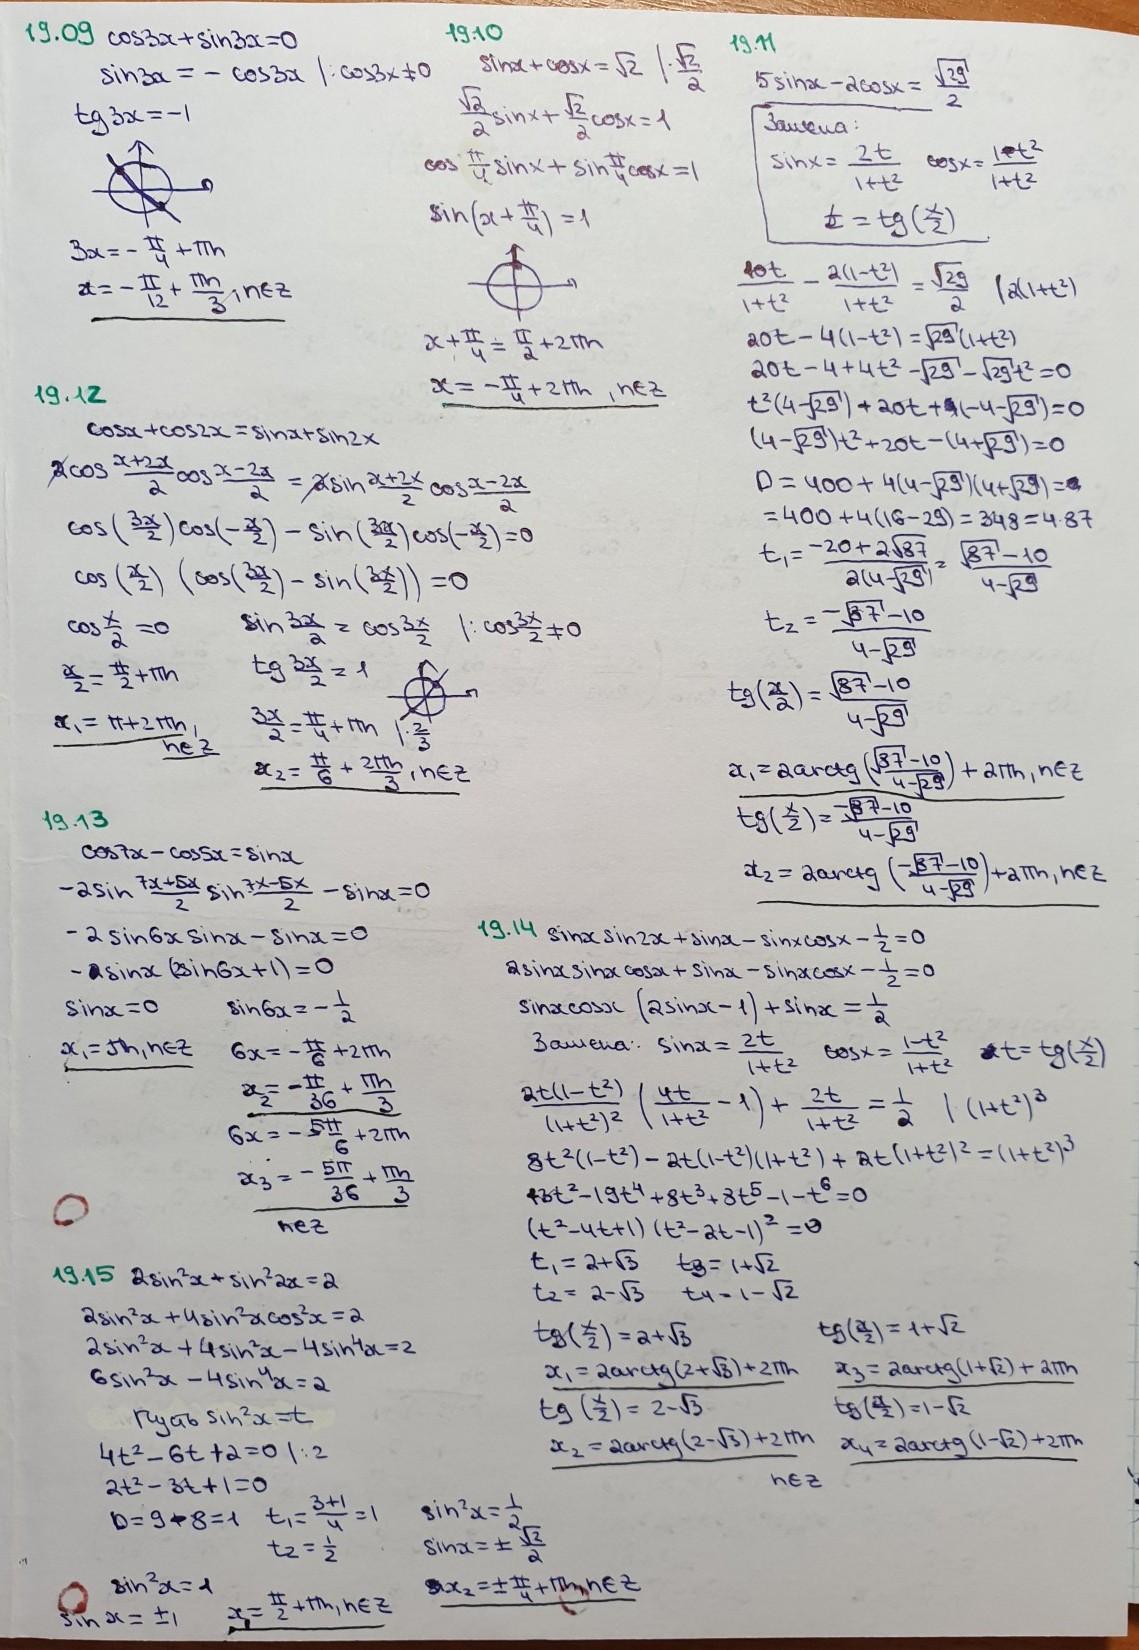 19.09 cos3x+sin3x=0
sin3x = - cos3x |: cos3x≠0
tg3x=-1
3x=-π/4+πn
x=-π/12+πn/3, n∈Z
19.10
sinx+cosx=√2 |·√2/2
√2/2 sinx+√2/2 cosx=1
cos π/4 sinx+sin π/4 cosx=1
sin(x+π/4)=1
x+π/4=π/2+2πn
x=-π/4+2πn, n∈Z
19.11
5sinx-2cosx=√29/2
Замена:
sinx=2t/(1+t²) cosx=(1-t²)/(1+t²)
t=tg(x/2)
10t/(1+t²) - 2(1-t²)/(1+t²) = √29/2 |2(1+t²)
20t-4(1-t²)=√29(1+t²)
20t-4+4t²-√29-√29t²=0
t²(4-√29)+20t+(-4-√29)=0
(4-√29)t²+20t-(4+√29)=0
D=400+4(4-√29)(4+√29)=
=400+4(16-29)=348=4·87
t₁=(-20+2√87)/(2(4-√29))=(√87-10)/(4-√29)
t₂=(-√87-10)/(4-√29)
tg(x/2)=(√87-10)/(4-√29)
x₁=2arctg((√87-10)/(4-√29))+2πn, n∈Z
tg(x/2)=(-√87-10)/(4-√29)
x₂=2arctg((-√87-10)/(4-√29))+2πn, n∈Z
19.12
cosx+cos2x=sinx+sin2x
2cos (x+2x)/2 cos (x-2x)/2 = 2sin (x+2x)/2 cos (x-2x)/2
cos(3x/2)cos(-x/2)-sin(3x/2)cos(-x/2)=0
cos(x/2) (cos(3x/2)-sin(3x/2))=0
cos x/2=0 sin 3x/2=cos 3x/2 |: cos 3x/2≠0
x/2=π/2+πn tg 3x/2=1
x₁=π+2πn, n∈Z 3x/2=π/4+πn |·2/3
x₂=π/6+2πn/3, n∈Z
19.13
cos7x-cos5x=sinx
-2sin (7x+5x)/2 sin (7x-5x)/2 -sinx=0
-2sin6xsinx-sinx=0
-sinx(2sin6x+1)=0
sinx=0 sin6x=-1/2
x₁=πn, n∈Z 6x=-π/6+2πn
x₂=-π/36+πn/3
6x=-5π/6+2πn
x₃=-5π/36+πn/3
n∈Z
19.14 sinxsin2x+sinx-sinxcosx-1/2=0
2sinxsinxcosx+sinx-sinxcosx-1/2=0
sinxcosx(2sinx-1)+sinx=1/2
Замена: sinx=2t/(1+t²) cosx=(1-t²)/(1+t²) t=tg(x/2)
2t(1-t²)/(1+t²)² (4t/(1+t²)-1)+2t/(1+t²)=1/2 |(1+t²)³
8t²(1-t²)-2t(1-t²)(1+t²)+2t(1+t²)²=(1+t²)³
13t²-19t⁴+8t³+8t⁵-1-t⁶=0
(t²-4t+1)(t²-2t-1)²=0
t₁=2+√3 t₃=1+√2
t₂=2-√3 t₄=1-√2
tg(x/2)=2+√3 tg(x/2)=1+√2
x₁=2arctg(2+√3)+2πn x₃=2arctg(1+√2)+2πn
tg(x/2)=2-√3 tg(x/2)=1-√2
x₂=2arctg(2-√3)+2πn x₄=2arctg(1-√2)+2πn
n∈Z
19.15 2sin²x+sin²2x=2
2sin²x+4sin²xcos²x=2
2sin²x+4sin²x-4sin⁴x=2
6sin²x-4sin⁴x=2
Пусть sin²x=t
4t²-6t+2=0 |:2
2t²-3t+1=0
D=9-8=1 t₁=(3+1)/4=1
t₂=1/2
sin²x=1
sinx=±1 x₁=π/2+πn, n∈Z
sin²x=1/2
sinx=±√2/2
x₂=±π/4+πn, n∈Z